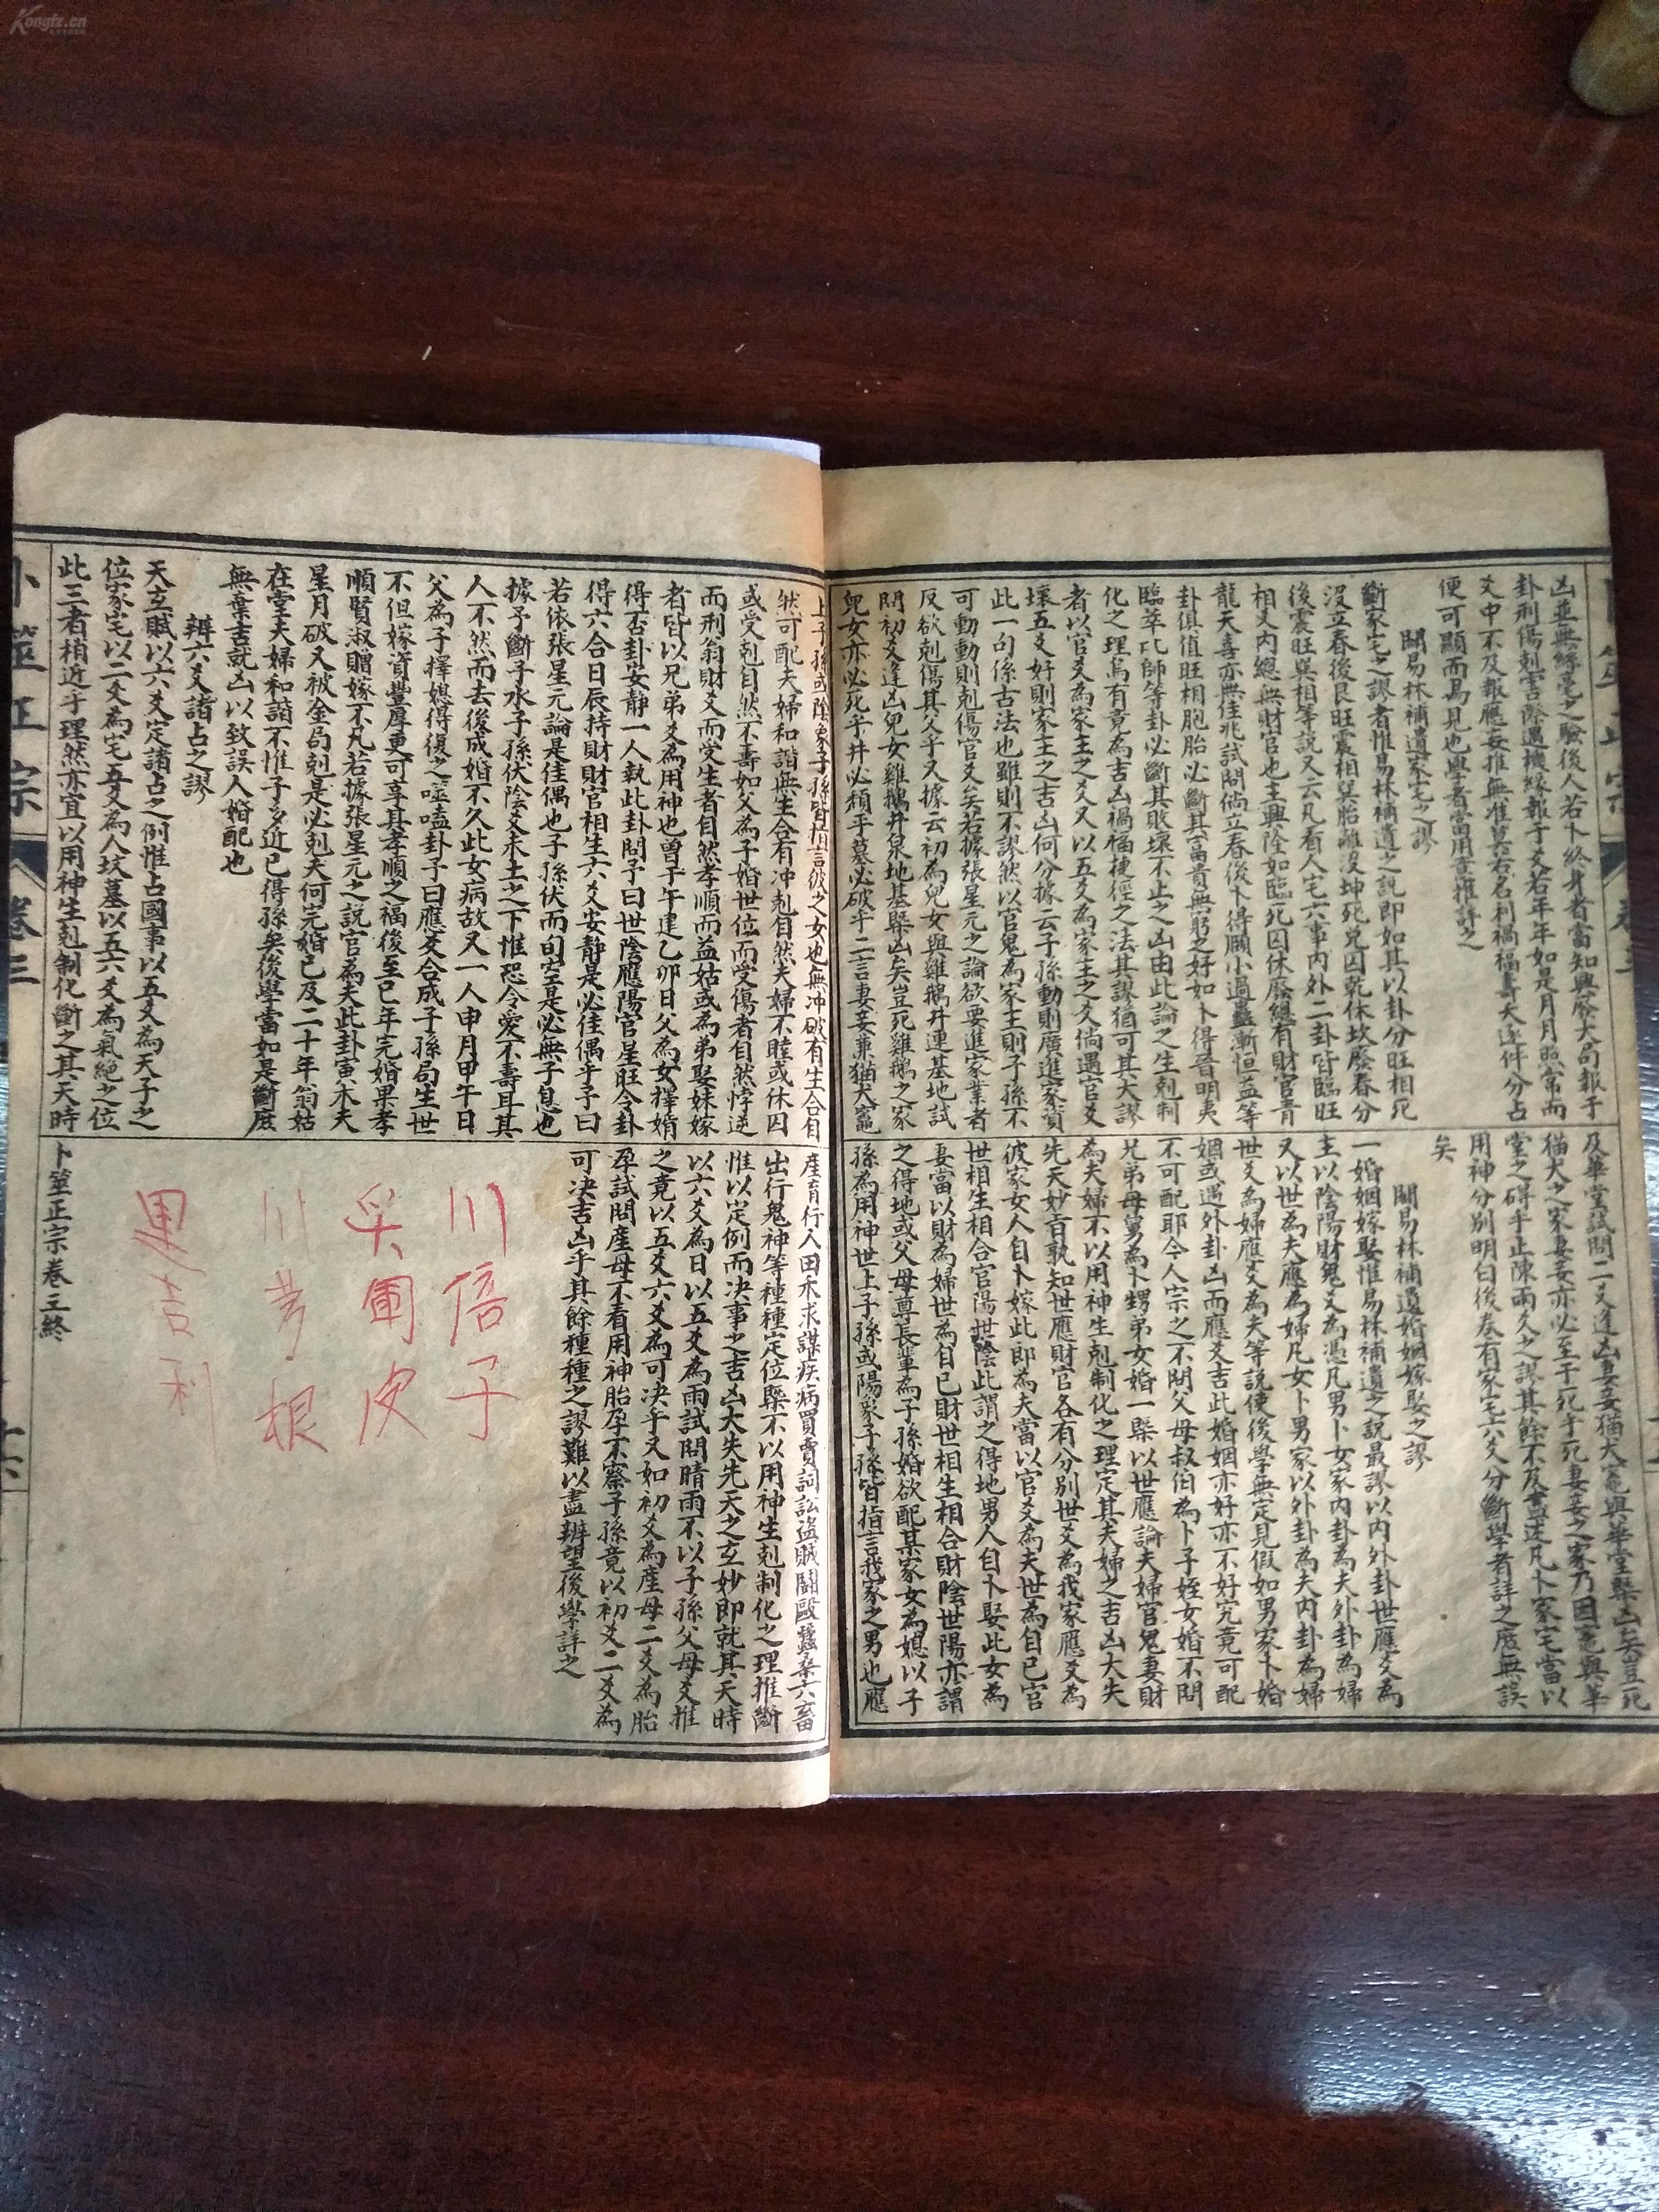 Kongfz.cn
凶並無絲毫之驗後人若卜終身者當知興廢大局報子
卦刑傷剋害際遇機緣報子爻若年年如是月月照常而
爻中不及報應妄推無准莫若名利禍福壽夭逐件分占
便可顯而易見也學者當用意推詳之
闢易林補遺家宅之謬
斷家宅之謬者惟易林補遺之說即如其以卦分旺相死
沒立春後艮旺震相巽胎離沒坤死兌囚乾休坎廢春分
後震旺巽相等說又云凡看人宅六事內外二卦皆臨旺
相爻內總無財官也主興隆如臨死囚休廢總有財官青
龍天喜亦無佳兆試問倘立春後卜得頤小過蠱漸恒益等
卦俱值旺相胞胎必斷其富貴無窮之好如卜得晉明夷
臨萃比師等卦必斷其敗壞不止之凶由此論之生剋制
化之理烏有竟為吉凶禍福捷徑之法其謬猶可其大謬
者以官爻為家主之爻又以五爻為家主之爻倘遇官爻
壞五爻好則家主之吉凶何分據云子孫動則廣進家資
此一句係古法也雖則不謬然以官鬼為家主則子孫不
可動動則剋傷官爻矣若據張星元之論欲要進家業者
反欲剋傷其父乎又據云初為兒女與雞鵝井連基地試
問初爻逢凶兒女雞鵝井泉地基槩凶矣豈死雞鵝之家
兒女亦必死乎井必頹乎墓必破乎二言妻妾兼猫犬竈
及華堂試問二爻逢凶妻妾猫犬竈與華堂槩凶矣豈死
猫犬之家妻妾亦必至于死乎死妻妾之家乃因竈與華
堂之碍乎止陳兩久之謬其餘不及盡述凡卜家宅當以
用神分別明白後卷有家宅六爻分斷學者詳之庶無誤
矣
闢易林補遺婚姻嫁娶之謬
一婚姻嫁娶惟易林補遺之說最謬以內外卦世應爻為
主以陰陽財鬼爻為憑凡男卜女家內卦為夫外卦為婦
又以世為夫應為婦凡女卜男家以外卦為夫內卦為婦
世爻為婦應爻為夫等說使後學無定見假如男家卜婚
姻或遇外卦凶而應爻吉此婚姻亦好亦不好究竟可配
不可配耶今人宗之不問父母叔伯為卜子姪女婚不問
兄弟母舅為卜甥弟女婚一槩以世應論夫婦官鬼妻財
為夫婦不以用神生剋制化之理定其夫婦之吉凶大失
先天妙旨孰知世應財官各有分別世爻為我家應爻為
彼家女人自卜嫁此即為夫當以官爻為夫世為自已官
世相生相合官陽世陰此謂之得地男人自卜娶此女為
妻當以財為婦世為自已財世相生相合財陰世陽亦謂
之得地或父母尊長輩為子孫婚欲配某家女為媳以子
孫為用神世上子孫或陽象子孫皆指言我家之男也應
上子孫或陰象子孫皆指言彼之女也無冲破有生合自
然可配夫婦和諧無生合有冲剋自然夫婦不睦或休囚
或受剋自然不壽如父為子婚世位而受傷者自然悖逆
而刑翁財爻而受生者自然孝順而益姑或為弟娶妹嫁
者皆以兄弟爻為用神也曾于午建乙卯日父為女擇婚
得否卦安靜一人執此卦問予曰世陰應陽官星旺今卦
得六合日辰持財財官相生六爻安靜是必佳偶乎予曰
若依張星元論是佳偶也子孫伏而旬空是必無子息也
據予斷子水子孫伏陰爻未土之下惟恐令愛不壽耳其
人不然而去後成婚不久此女病故又一人申月甲午日
父為子擇媳得復之噬嗑卦予曰應爻合成子孫局生世
不但嫁資豐厚更可享其孝順之福後至巳年完婚果孝
順賢淑贈嫁不凡若據張星元之說官為夫此卦寅木夫
星月破又被金局剋是必剋夫何完婚已及二十年翁姑
在堂夫婦和諧不惟子多近已得孫矣後學當如是斷庶
無棄吉就凶以致誤人婚配也
辨六爻諸占之謬
天玄賦以六爻定諸占之例惟占國事以五爻為天子之
位家宅以二爻為宅五爻為人坟墓以五六爻為氣絕之位
此三者相近乎理然亦宜以用神生剋制化斷之其天時
產育行人田禾求謀疾病買賣詞訟盜賊鬪毆蠶桑六畜
出行鬼神等種種定位槩不以用神生剋制化之理推斷
惟以定例而决事之吉凶大失先天之玄妙即就其天時
以六爻為日以五爻為雨試問晴雨不以子孫父母爻推
之竟以五爻六爻為可决乎又如初爻為產母二爻為胎
孕試問產母不看用神胎孕不察子孫竟以初爻二爻為
可决吉凶乎其餘種種之謬難以盡辨望後學詳之
卜筮正宗卷三終
卜筮正宗 卷三
川 倍 子
川 芎 根